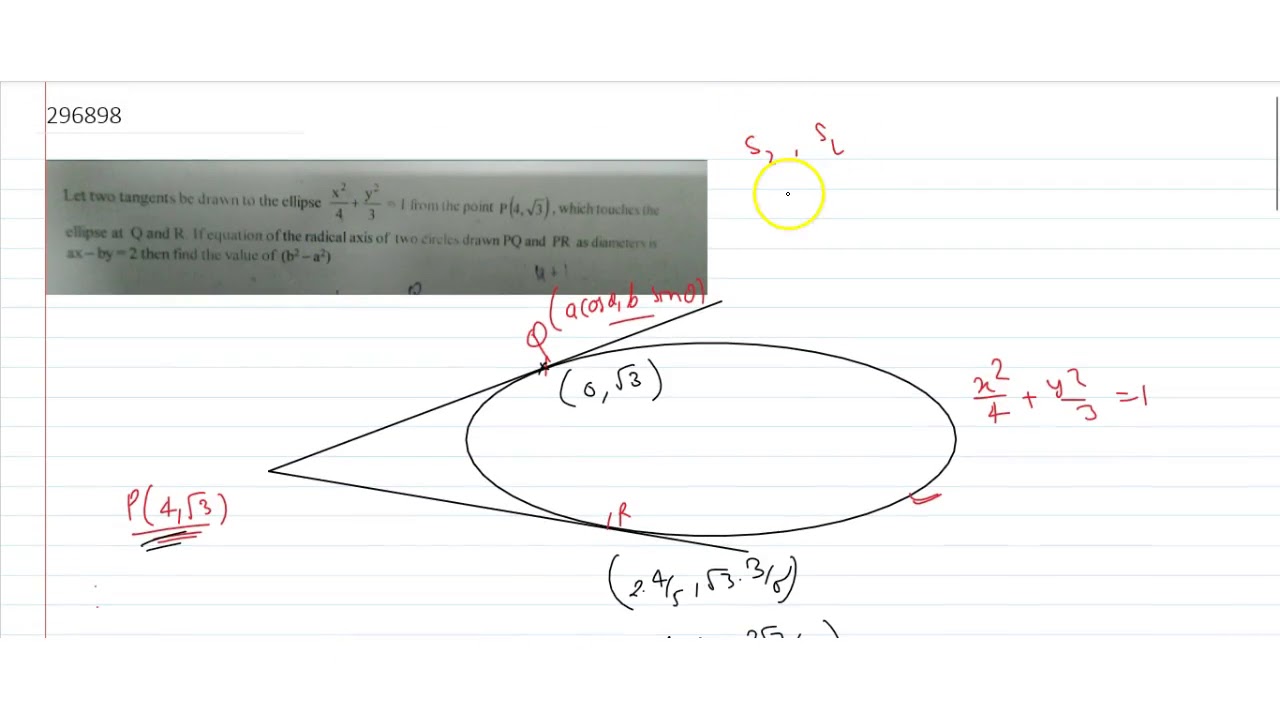 296898
S₁, S₂
Let two tangents be drawn to the ellipse x²/4 + y²/3 = 1 from the point P(4, √3), which touches the
ellipse at Q and R. If equation of the radical axis of two circles drawn PQ and PR as diameters is
ax – by = 2 then find the value of (b² – a²)
Q (a cosθ, b sinθ)
(0, √3)
x²/4 + y²/3 = 1
P(4, √3)
R
(2.4/5, √3.3/5)